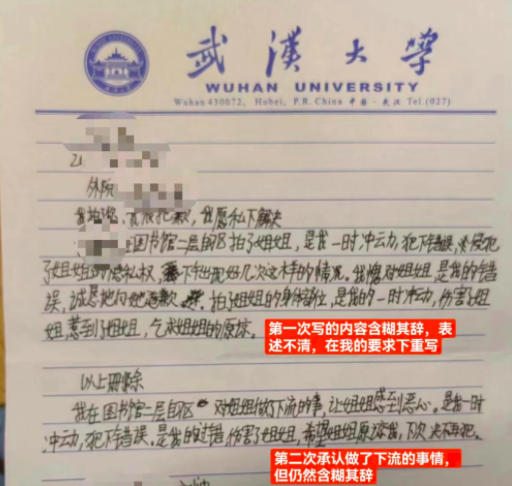 武漢大學
WUHAN UNIVERSITY
Wuhan 430072, Hubei, P.R. China 中国·武汉 Tel.(027)
外院
我抱歉,我愿私下解决
在图书馆二层自习区拍了姐姐,是我一时冲动,犯下错误,侵犯
了姐姐的隐私权,下出现好几次这样的情况。我愧对姐姐,是我的错
误,诚恳地向她道歉。拍姐姐的身体部位,是我的一时冲动,伤害了姐
姐,惹到了姐姐,乞求姐姐的原谅。
第一次写的内容含糊其辞,表
述不清,在我的要求下重写
以上删除
我在图书馆二层自习区对姐姐做了下流的事,让姐姐感到恶心。是我一时
冲动,犯下错误,是我的过错,伤害了姐姐,希望姐姐原谅我,下次决不再犯。
第二次承认做了下流的事情,
但仍然含糊其辞